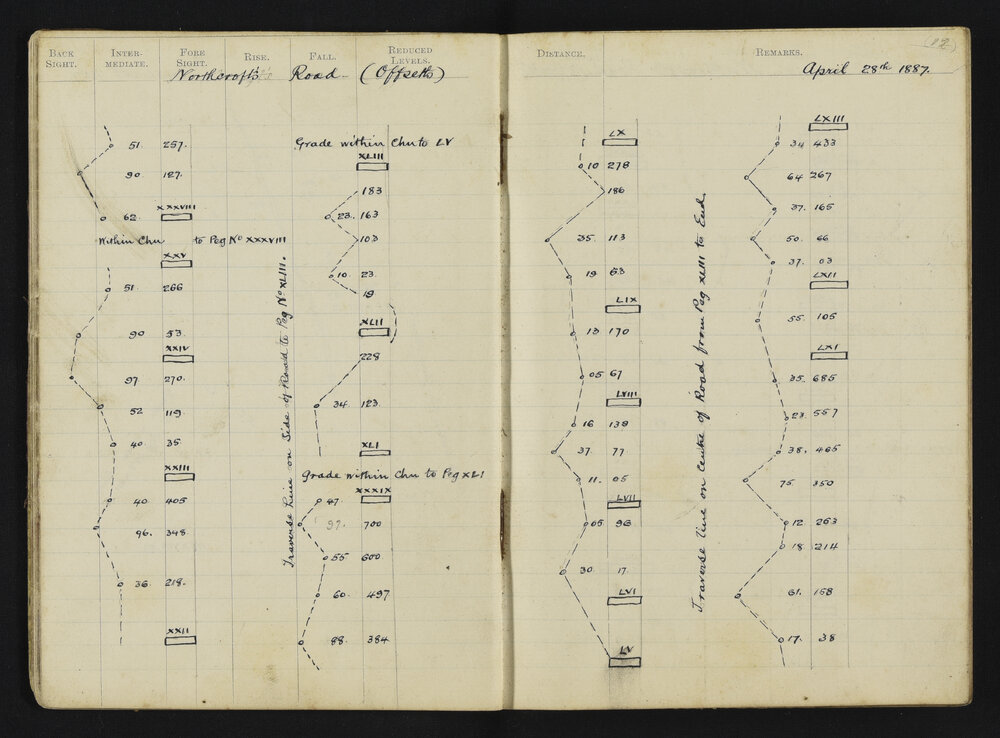 BACK SIGHT. INTER-MEDIATE. FORE SIGHT. RISE. FALL. REDUCED LEVELS.
Northcroft's Road (Offsetts)
51 257.
90 127.
XXXVIII
62.
Within Chn to Peg No XXXVIII
XXV
51. 266
90 53.
XXIV
97 270.
52 119
40. 35
XXIII
40. 405
96. 348
36 218.
XXII
Traverse Line on Side of Road to Peg No XLIII.
Grade within Chn to LV
XLIII
183
23. 163
103
10 23.
19
XLII
228
34 123.
XLI
Grade within Chn to Peg XLI
XXXIX
47.
97. 700
55 600
60. 497
88. 384
DISTANCE. REMARKS.
(12)
April 28th 1887.
LX
10 278
186
35. 113
19 63
LIX
13 170
05 67
LVIII
16 138
37. 77
11. 05
LVII
05 96
30 17.
LVI
LV
Traverse line on Centre of Road from Peg XLIII to End.
LXIII
34 433
64 267
37. 165
50. 66
37. 03
LXII
55 105
LXI
35. 685
23. 557
38. 465
75 350
12 263
18 214
61. 158
17. 38